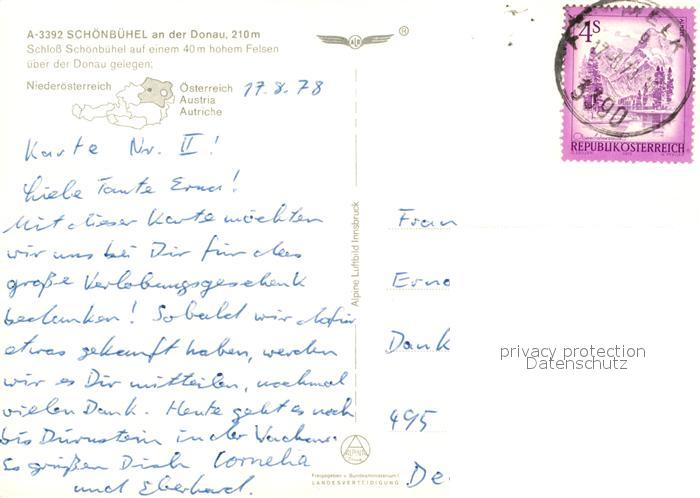 A-3392 SCHÖNBÜHEL an der Donau, 210m
Schloß Schönbühel auf einem 40m hohem Felsen
über der Donau gelegen;
Niederösterreich
Österreich
Austria
Autriche
17.8.78
Karte Nr. II!
Liebe Tante Erna!
Mit dieser Karte möchten
wir uns bei Dir für das
große Verlobungsgeschenk
bedanken! Sobald wir dafür
etwas gekauft haben, werden
wir es Dir mitteilen, nochmal
vielen Dank. Heute geht es noch
bis Dürnstein in der Wachau.
Es grüßen Dich Cornelia
und Eberhard.
Alpine Luftbild Innsbruck
®
4S
MELK
3390
REPUBLIK ÖSTERREICH
Frau
Erna
Dank
495
De
privacy protection
Datenschutz
ALPINE
Freigegeben v. Bundesministerium f.
LANDESVERTEIDIGUNG